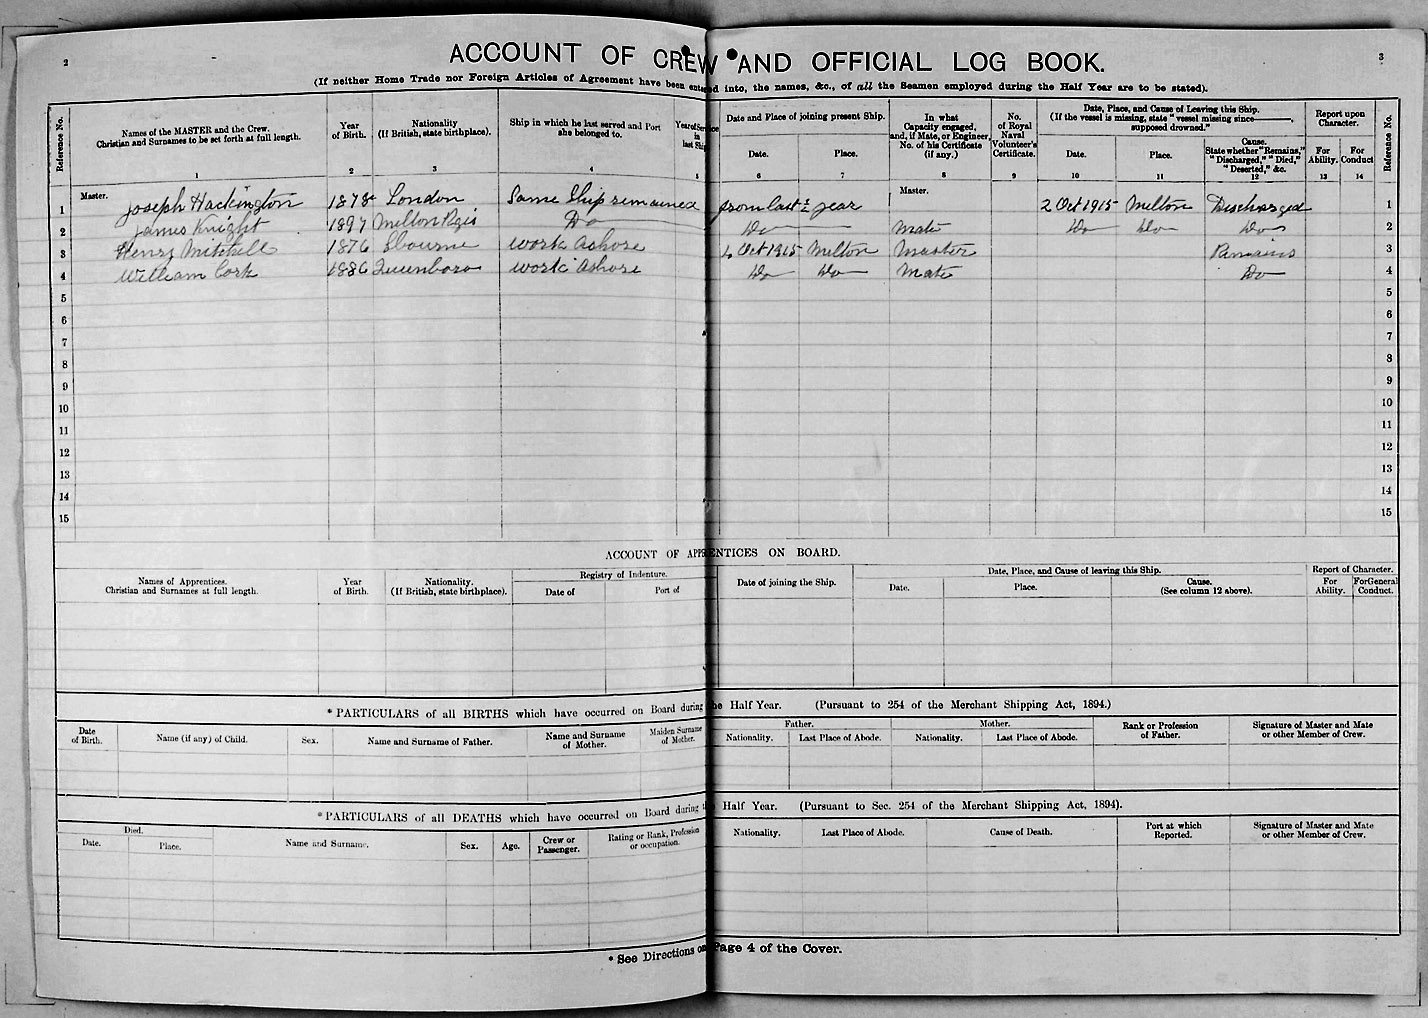 2
3
ACCOUNT OF CREW AND OFFICIAL LOG BOOK.
(If neither Home Trade nor Foreign Articles of Agreement have been entered into, the names, &c., of all the Seamen employed during the Half Year are to be stated).
Reference No. Names of the MASTER and the Crew. Christian and Surnames to be set forth at full length. Year of Birth. Nationality (If British, state birthplace). Ship in which he last served and Port she belonged to. Year of Service in last Ship Date and Place of joining present Ship. In what Capacity engaged, and, if Mate, or Engineer, No. of his Certificate (if any.) No. of Royal Naval Volunteer's Certificate. Date, Place, and Cause of Leaving this Ship. (If the vessel is missing, state "vessel missing since ———, supposed drowned." Report upon Character. Reference No.
Date. Place. Date. Place. Cause. State whether "Remains," "Discharged," "Died," "Deserted," &c. For Ability. For Conduct
1 2 3 4 5 6 7 8 9 10 11 12 13 14
1 Master. Joseph Hackington 1878 London Same Ship remained from last ½ year Master. 2 Oct 1915 Milton Discharged 1
2 James Knight 1897 Milton Regis Do Do Mate Do Do Do 2
3 Henry Mitchell 1876 Sbourne work Ashore 4 Oct 1915 Milton Master Remains 3
4 William Cork 1886 Queenboro work Ashore Do Do Mate Do 4
5 5
6 6
7 7
8 8
9 9
10 10
11 11
12 12
13 13
14 14
15 15
ACCOUNT OF APPRENTICES ON BOARD.
Names of Apprentices. Christian and Surnames at full length. Year of Birth. Nationality. (If British, state birthplace). Registry of Indenture. Date of joining the Ship. Date, Place, and Cause of leaving this Ship. Report of Character.
Date of Port of Date. Place. Cause. (See column 12 above). For Ability. For General Conduct.
*PARTICULARS of all BIRTHS which have occurred on Board during the Half Year. (Pursuant to 254 of the Merchant Shipping Act, 1894.)
Date of Birth. Name (if any) of Child. Sex. Name and Surname of Father. Name and Surname of Mother. Maiden Surname of Mother. Father. Mother. Rank or Profession of Father. Signature of Master and Mate or other Member of Crew.
Nationality. Last Place of Abode. Nationality. Last Place of Abode.
*PARTICULARS of all DEATHS which have occurred on Board during the Half Year. (Pursuant to Sec. 254 of the Merchant Shipping Act, 1894).
Died. Name and Surname. Sex. Age. Crew or Passenger. Rating or Rank, Profession or occupation. Nationality. Last Place of Abode. Cause of Death. Port at which Reported. Signature of Master and Mate or other Member of Crew.
Date. Place.
* See Directions on Page 4 of the Cover.